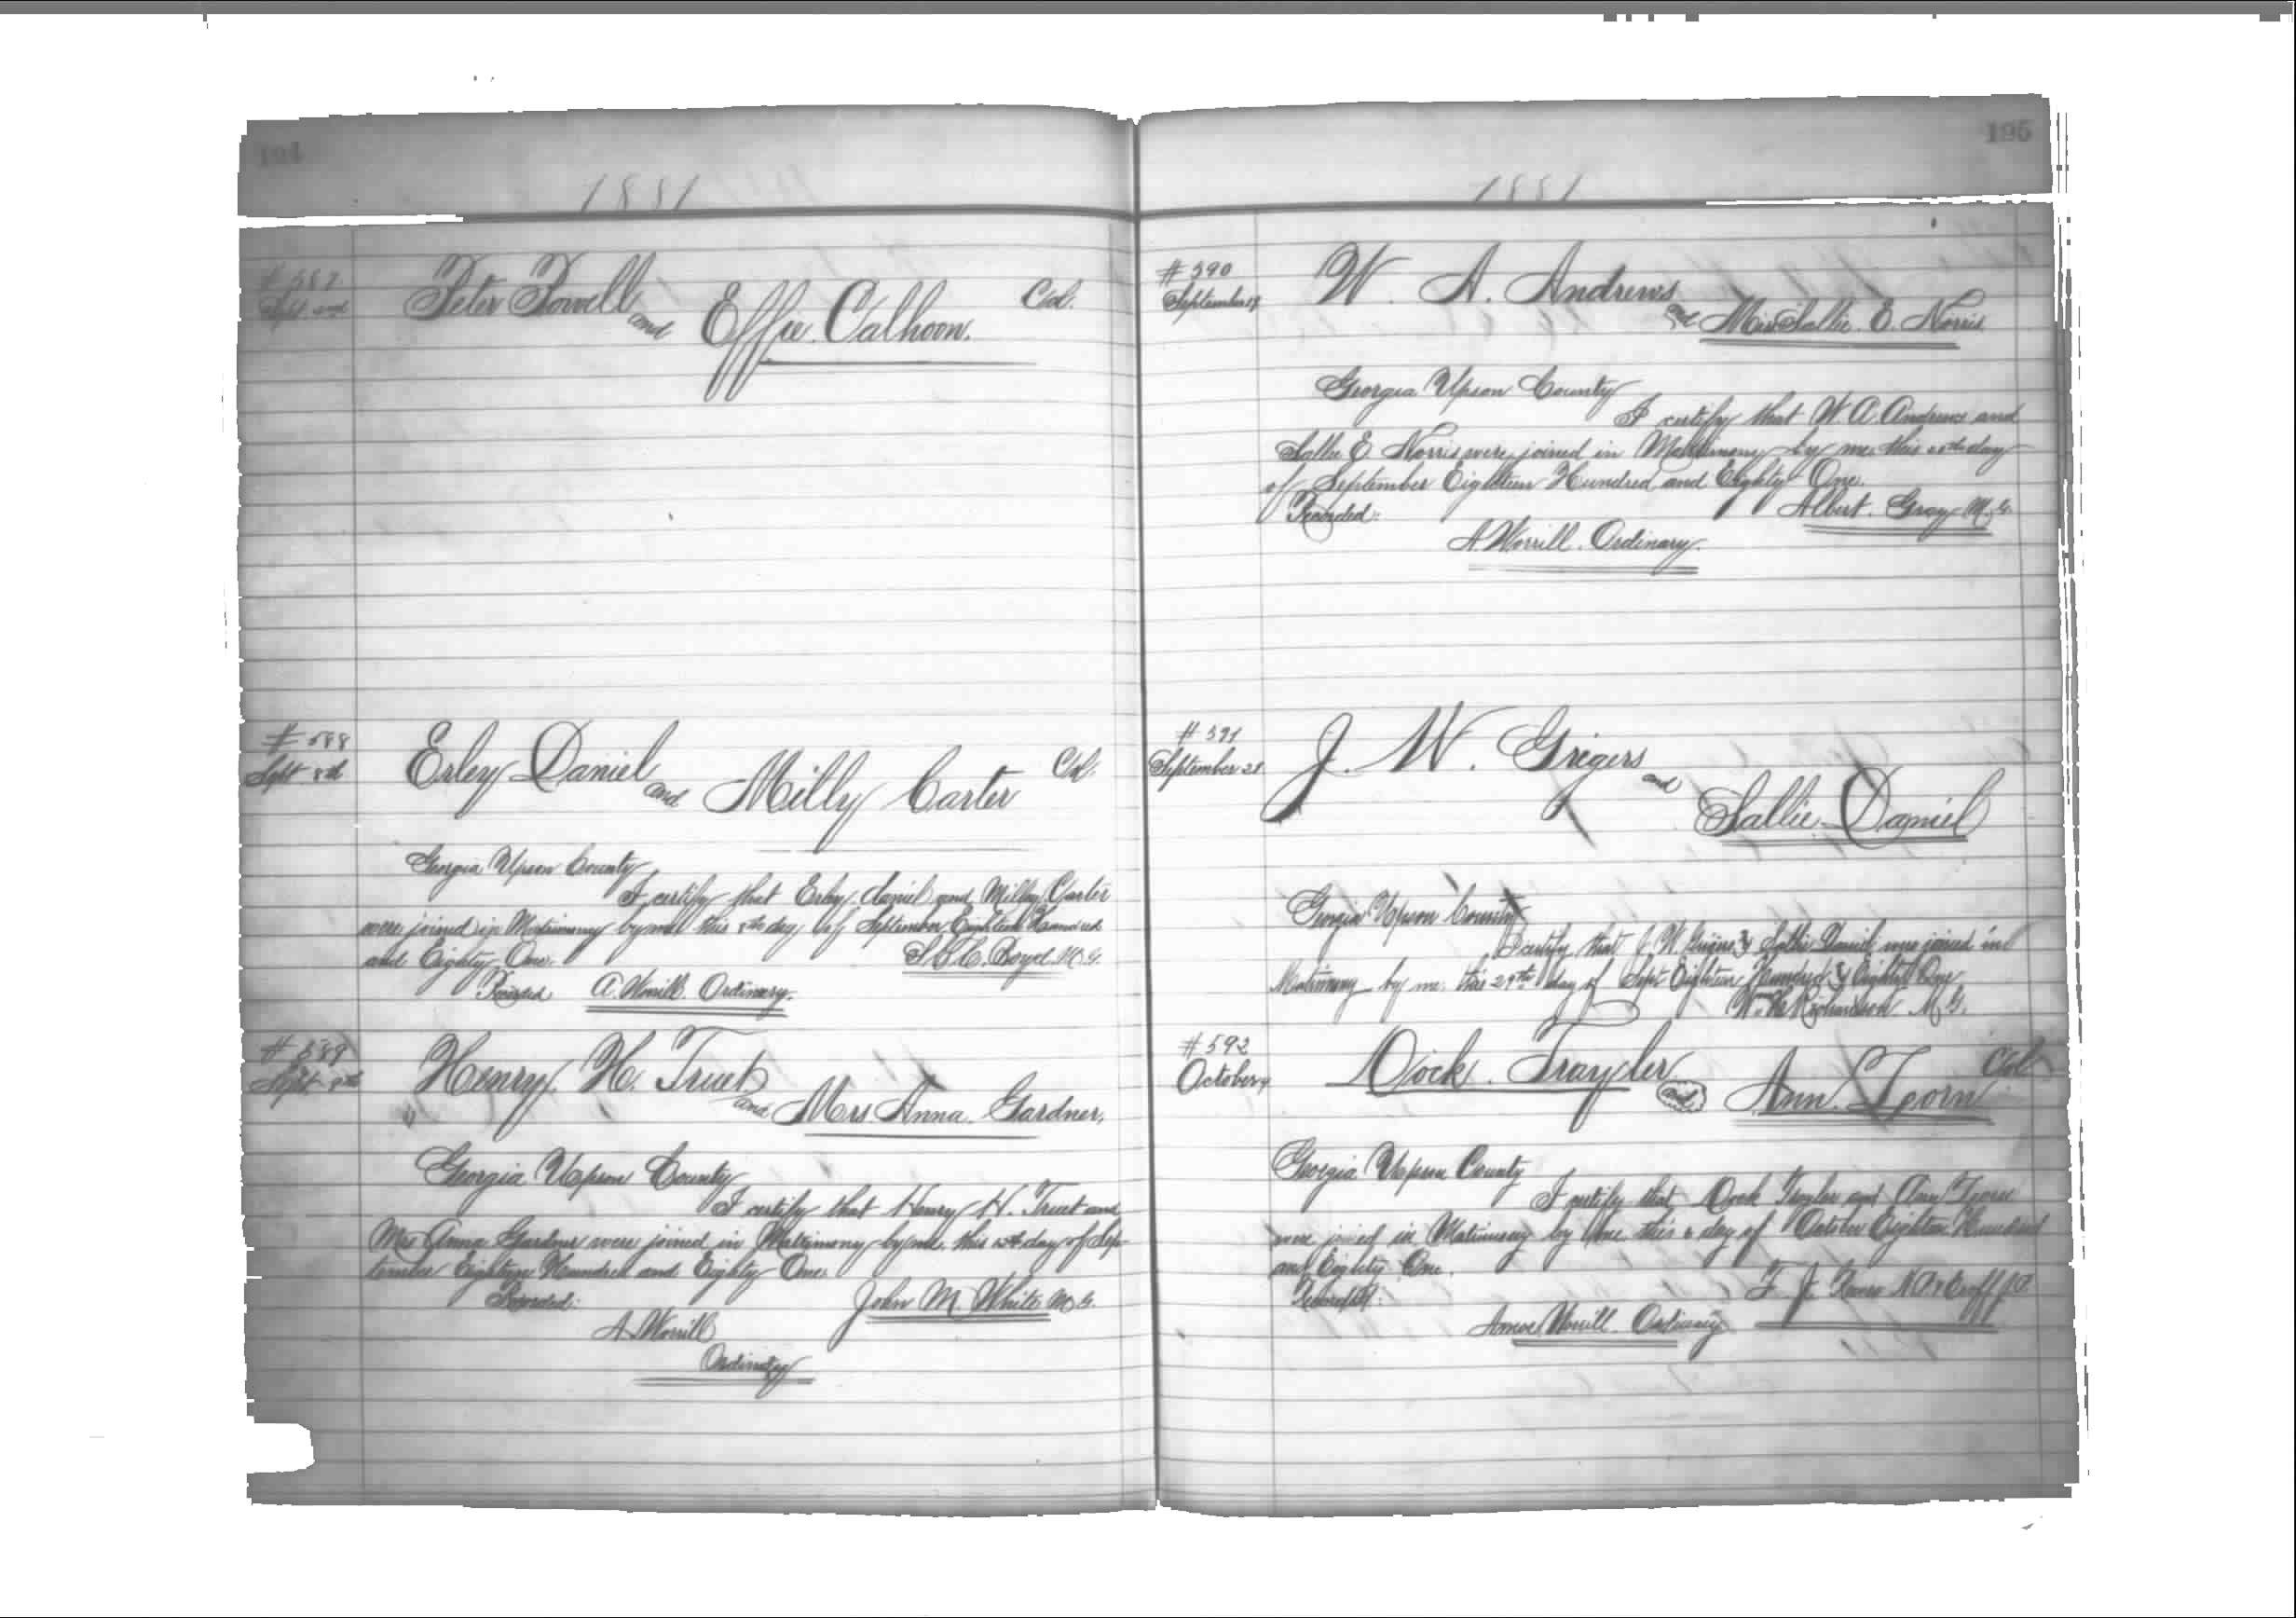 194
1881
# 587
Sept 2nd
Peter Powell and Effie Calhoon. Col.
# 588
Sept 8th
Erley Daniel and Milly Carter Col.
Georgia Upson County
I certify that Erley Daniel and Milley Carter
were joined in Matrimony by me this 8th day of September Eighteen Hundred
and Eighty One. S. C. Boyd M G.
Recorded A. Worrill Ordinary.
# 589
Sept. 8th
Henry H. Truet and Mrs Anna Gardner,
Georgia Upson County
I certify that Henry H. Truet and
Mrs Anna Gardner were joined in Matrimony by me, this day of Sep-
tember Eighteen Hundred and Eighty One.
Recorded: John M. White M G.
A Worrill
Ordinary
195
1881
# 590
September
W. A. Andrews and Miss Sallie E. Norris
Georgia Upson County
I certify that W. A. Andrews and
Sallie E Norris were joined in Matrimony by me this day
of September Eighteen Hundred and Eighty One.
Recorded: Albert Gray M. G.
A Worrill. Ordinary.
# 591
September 28
J. W. Grigers and Sallie Daniel
Georgia Upson County
I certify that J. W. & Sallie Daniel were joined in
Matrimony by me this 29th day of Sept Eighteen Hundred & Eighty One
W. Richardson M G.
# 592
October
Dock Trayler and Ann Col
Georgia Upson County
I certify that Dock Trayler and Ann
were joined in Matrimony by me this day of October Eighteen Hundred
and Eighty One.
Recorded: F. J.
Worrill Ordinary